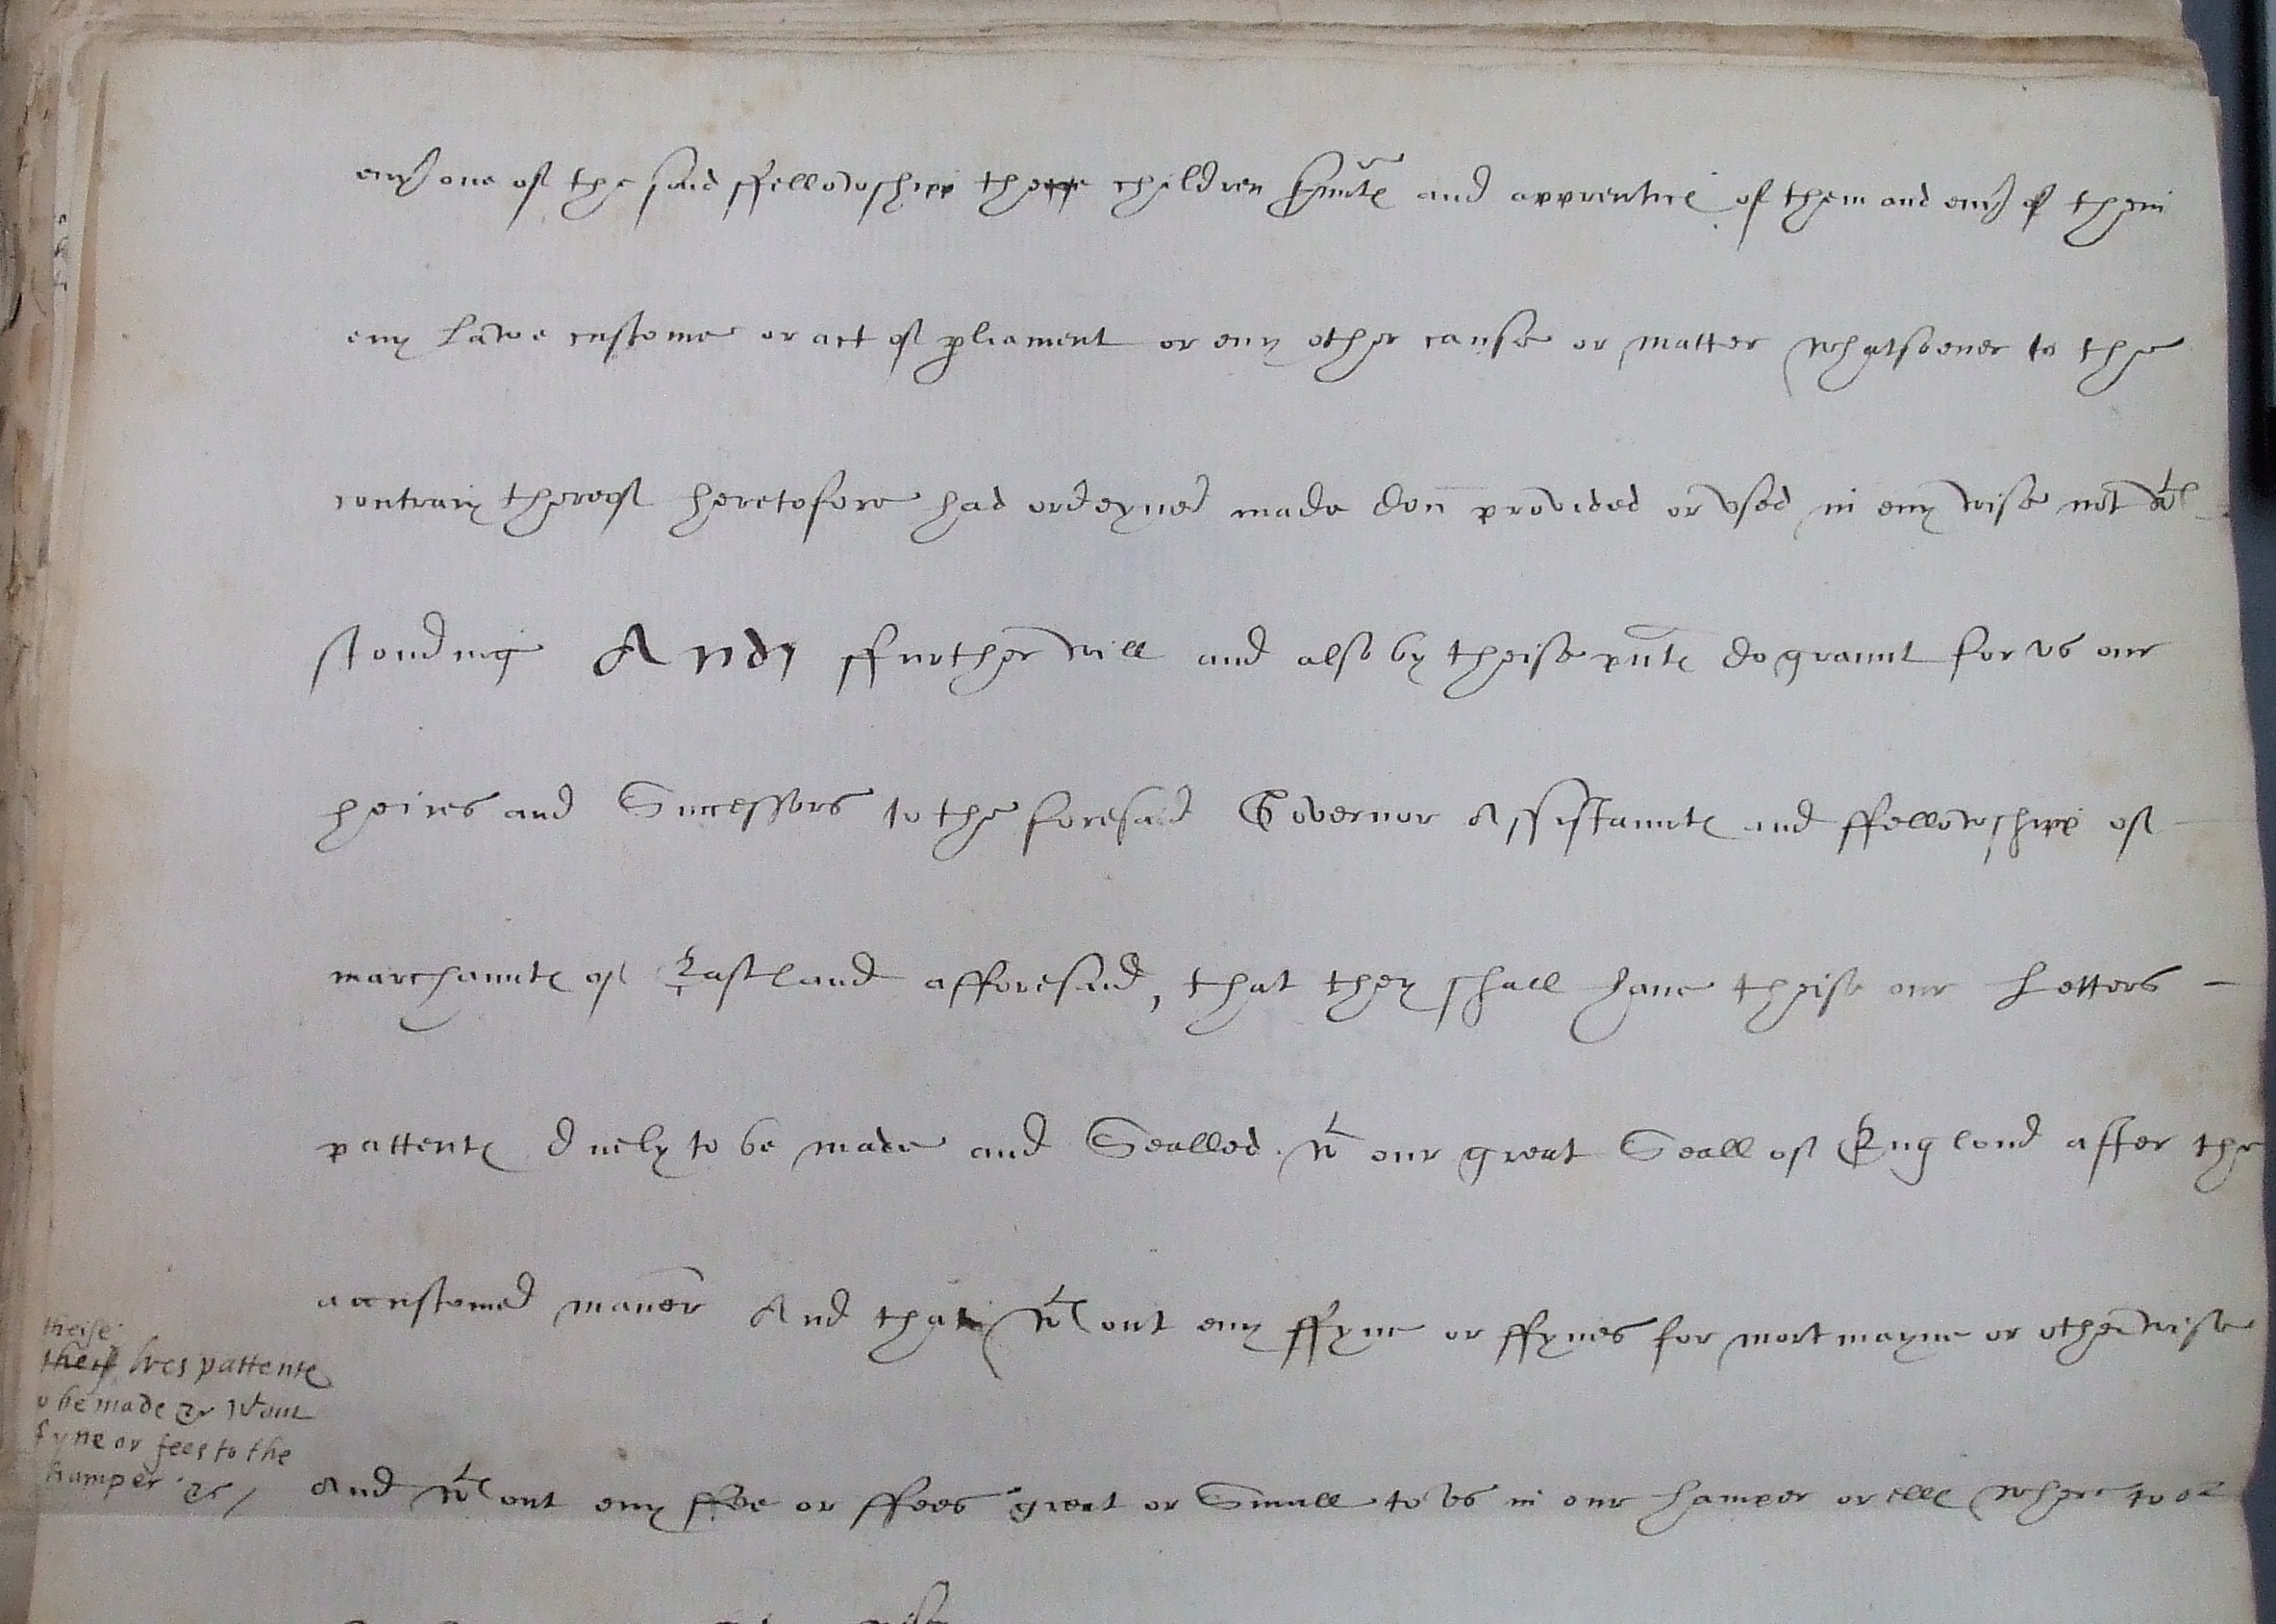 eny one of the said ffellowshipp theire children s̃vnte and apprentice of them and eny of them
eny Lawe custome or act of pliament or eny other cause or matter whatsoeuer to the
contrary thereof heretofore had ordeyned made don provided or vsed in eny wise not wth
stonding And ffurther will and also by theise pñte do graunt for vs our
heires and Successors to the foresaid Governor Assistaunte and ffellowshipp of
marchaunte of Eastland afforesaid, that they shall haue theise our Letters
pattente duely to be made and Sealled wt our great Seall of Englond after the
accustomed maner And that wthout eny ffyne or ffynes for mortmayne or otherwise
theise
lres pattente
o be made &c wtout
fyne or fees to the
hamper &c /
And wthout eny ffee or ffees great or Small to vs in our hamper or elle where to or